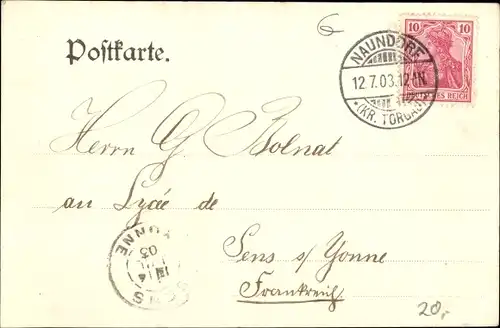 6
Postkarte.
10 10
DEUTSCHES REICH
NAUNDORF
12.7.03.12-1N.
*(KR. TORGAU)*
Herrn G. Bolnat
au Lycée de
Sens s/ Yonne
Frankreich
SENS
YONNE
03
20,-